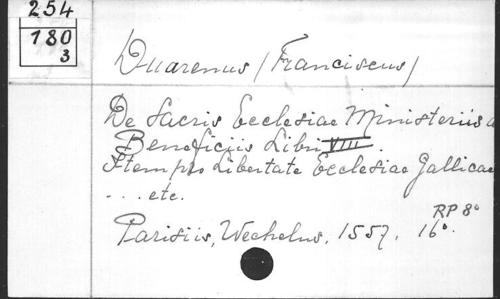 254
180
3
Duarenus (Franciscus)
De Sacris Ecclesiae Ministeriis a
Beneficiis Libri VIII.
Item pro Libertate Ecclesiae Gallicae
... etc.
RP 8°
Parisiis, Wechelus, 1557. 16°.